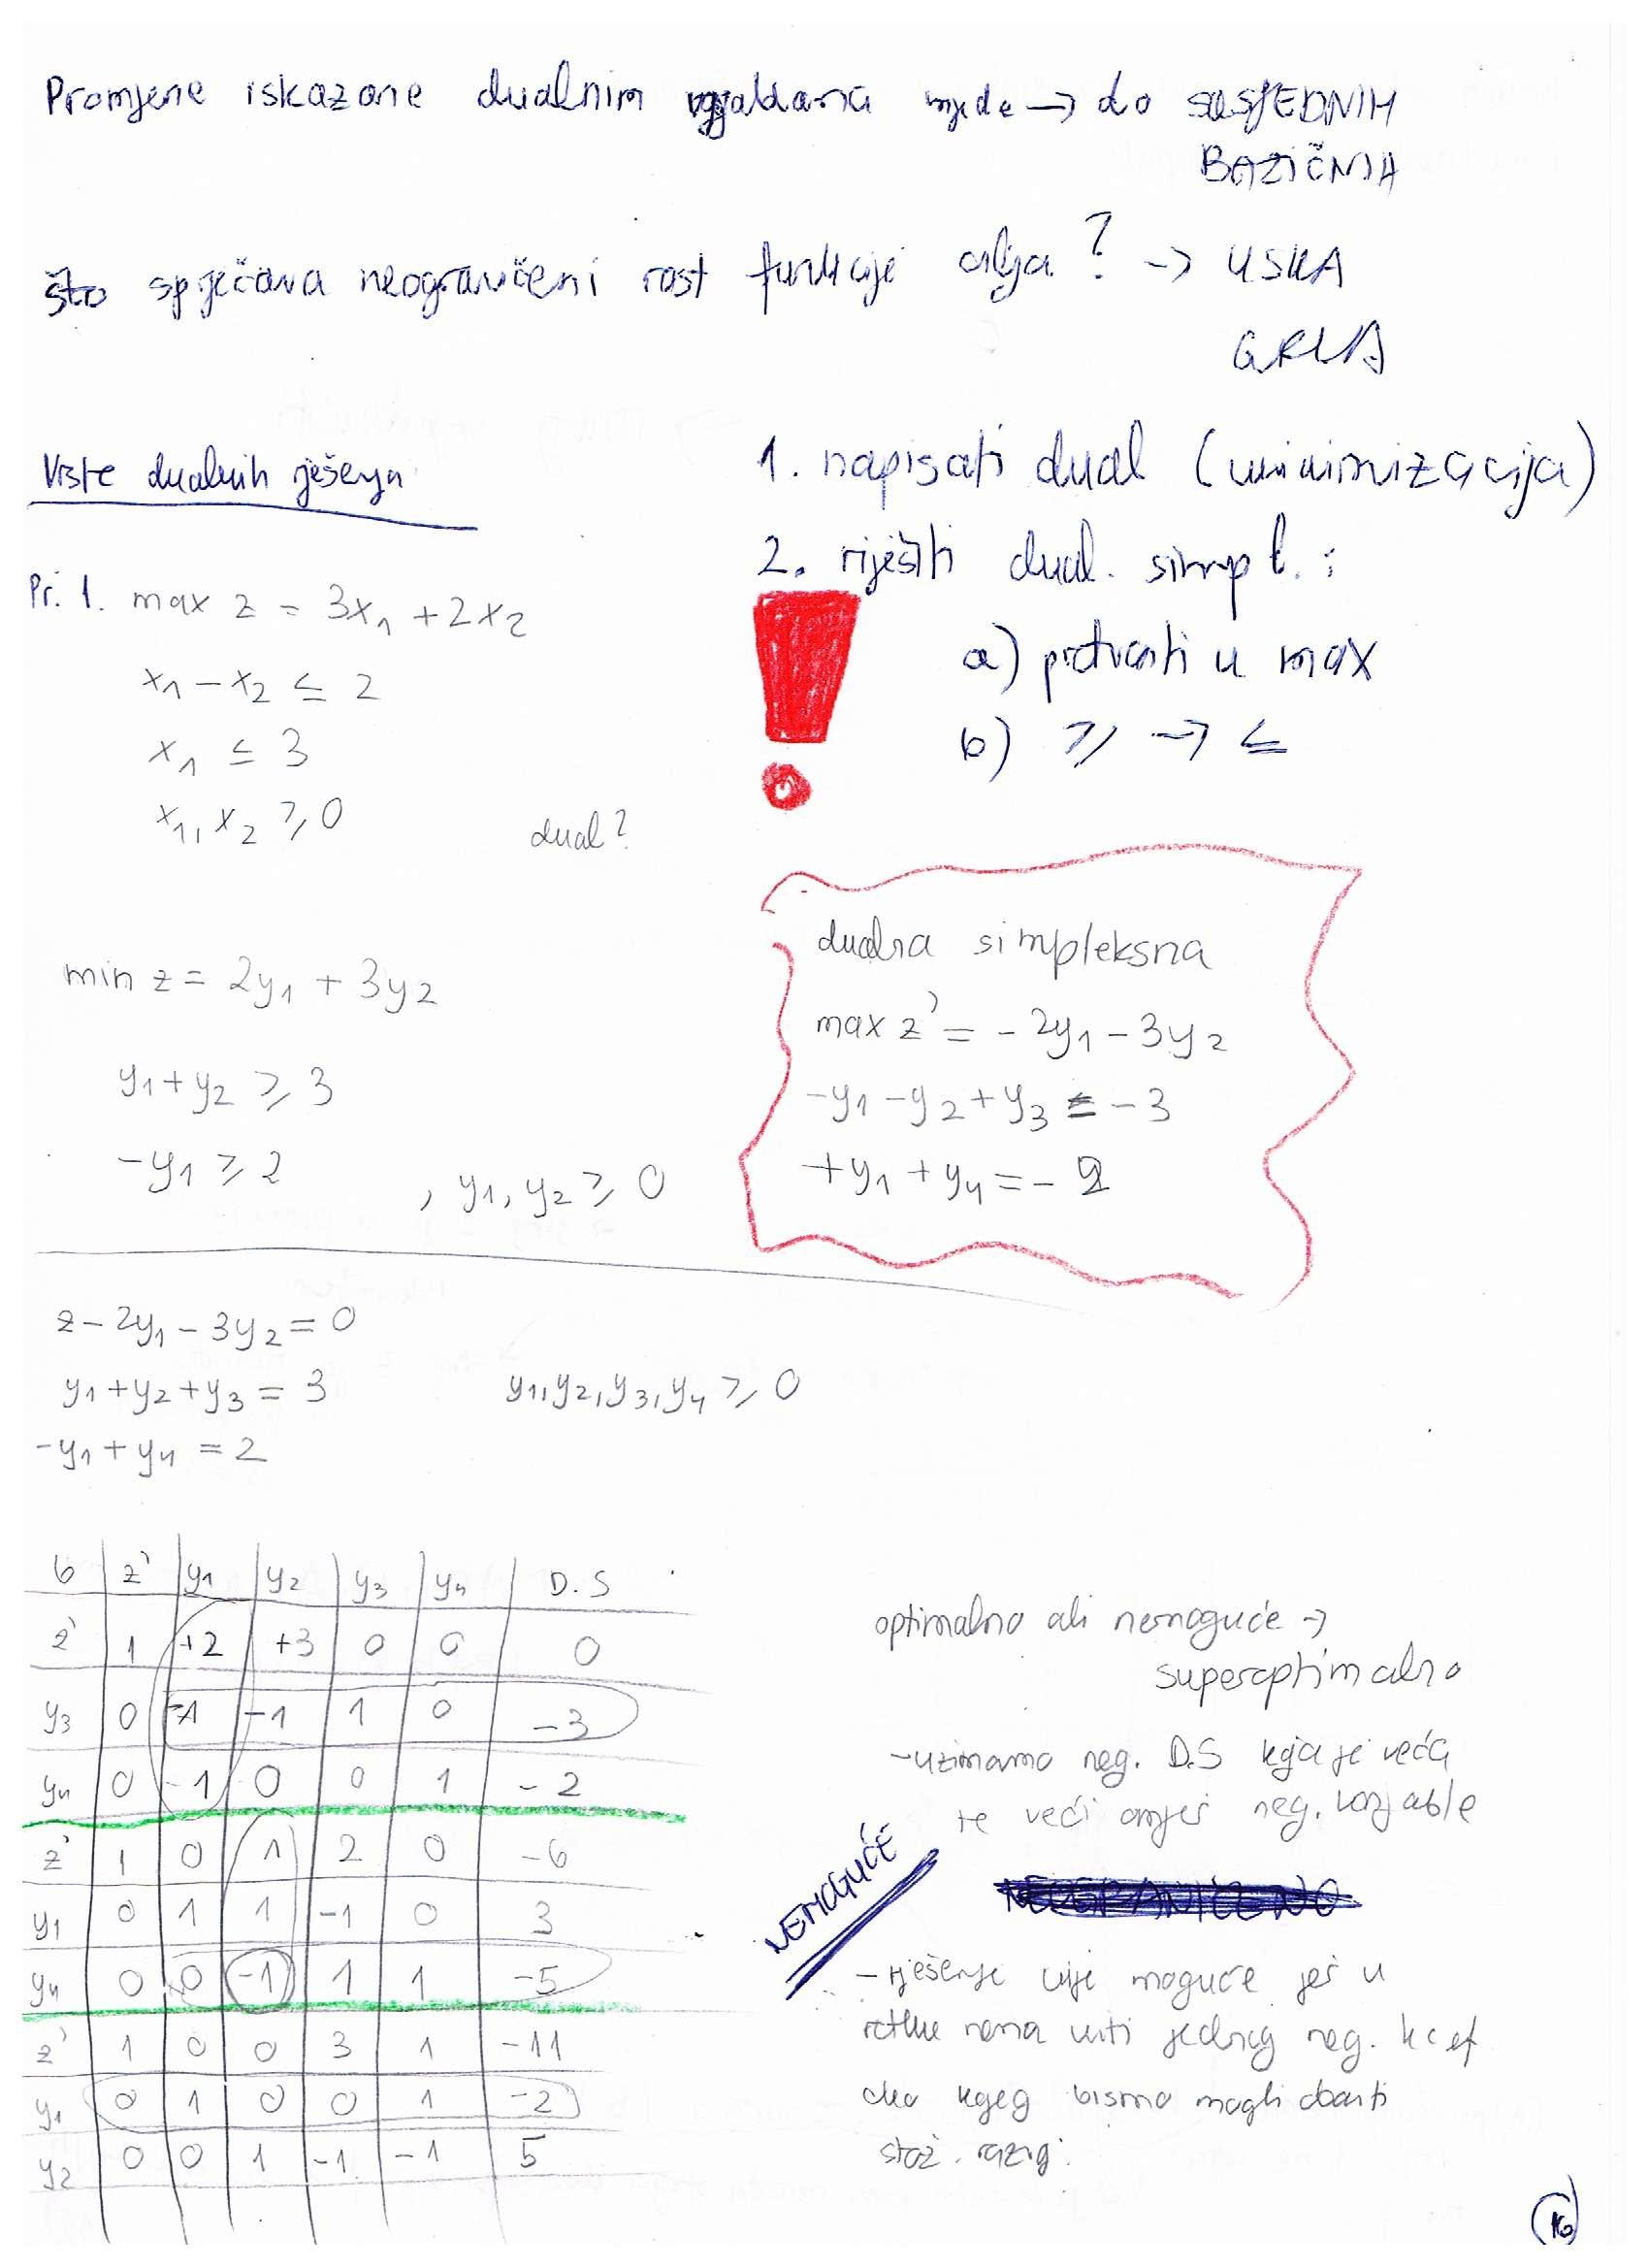 Promjene iskazane dualnim varijablama vrijede → do SUSJEDNIH
BAZIČNIH
što spječava neograničeni rast funkcije cilja? → USKA
GRLA
Vrste dualnih rješenja
1. napisati dual (minimizacija)
2. riješiti dual. simpl. :
a) pretvoriti u max
b) ≥ → ≤
Pr. 1. max z = 3x₁ + 2x₂
x₁ - x₂ ≤ 2
x₁ ≤ 3
x₁, x₂ ≥ 0
dual?
min z = 2y₁ + 3y₂
y₁ + y₂ ≥ 3
-y₁ ≥ 2 , y₁, y₂ ≥ 0
dualna simpleksna
max z' = -2y₁ - 3y₂
-y₁ - y₂ + y₃ = -3
+y₁ + y₄ = -2
z - 2y₁ - 3y₂ = 0
y₁ + y₂ + y₃ = 3
y₁, y₂, y₃, y₄ ≥ 0
-y₁ + y₄ = 2
b z' y₁ y₂ y₃ y₄ D.S
z' 1 +2 +3 0 0 0
y₃ 0 -1 -1 1 0 -3
y₄ 0 -1 0 0 1 -2
z' 1 0 1 2 0 -6
y₁ 0 1 1 -1 0 3
y₄ 0 0 -1 1 1 -5
z' 1 0 0 3 1 -11
y₁ 0 1 0 0 1 -2
y₂ 0 0 1 -1 -1 5
optimalno ali nemoguće →
superoptimalno
- uzimamo neg. D.S koja je veća
te veći omjer neg. varijable
NEMOGUĆE
- rješenje nije moguće jer u
retku nema niti jednog neg. koef
oko kojeg bismo mogli obaviti
stož. razvoj.
16